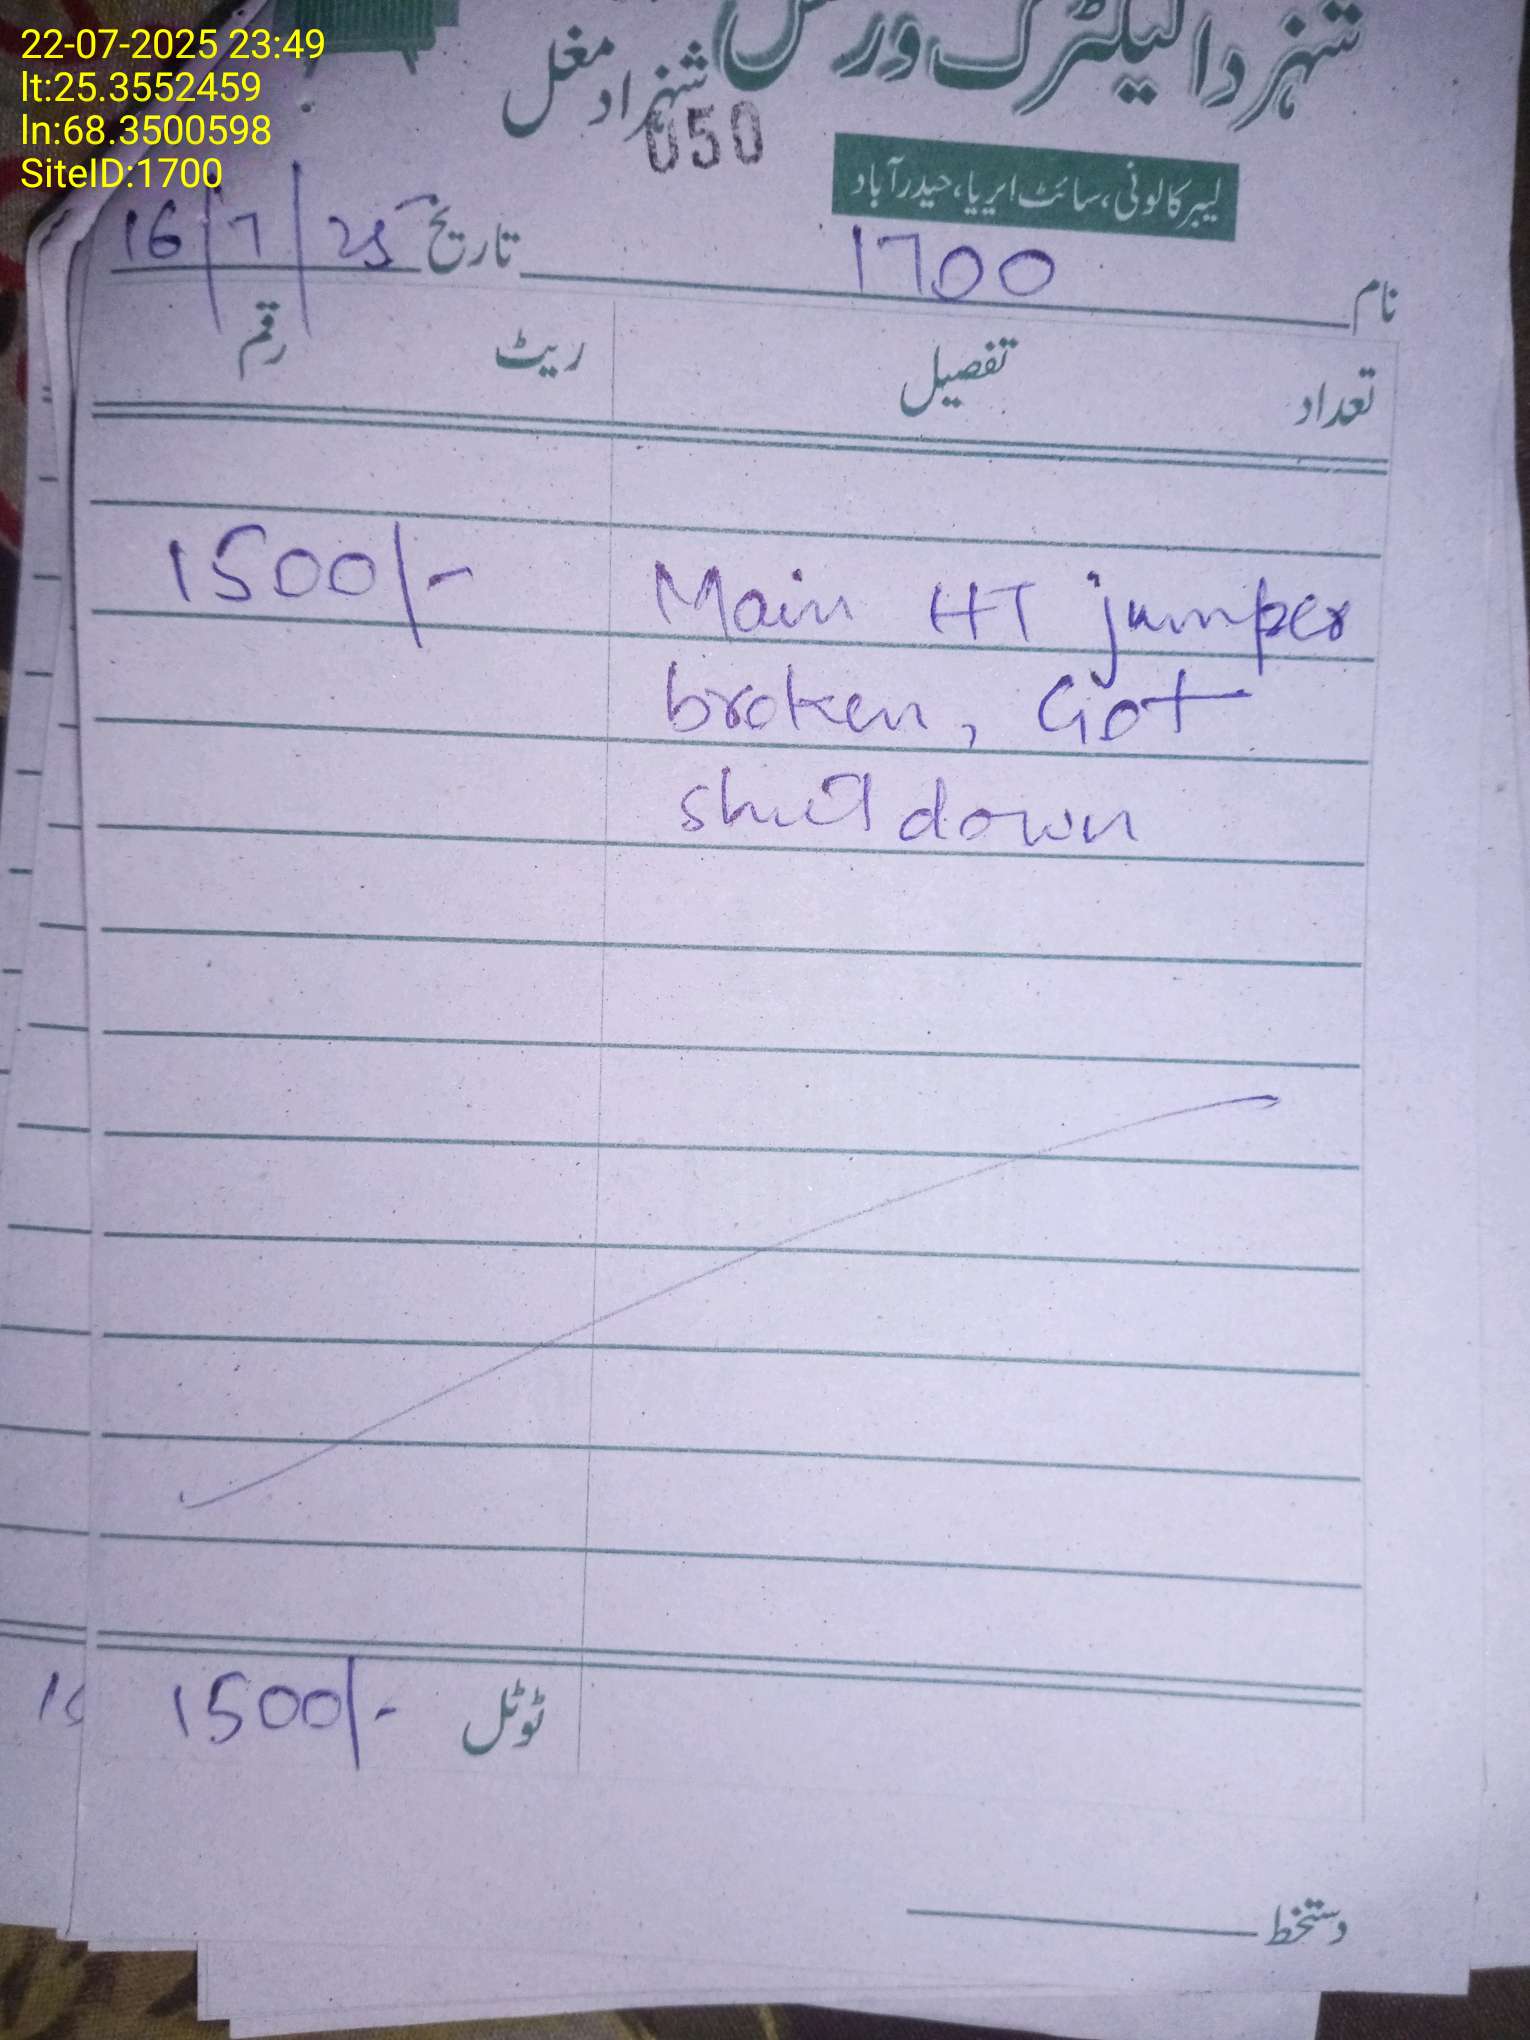 22-07-2025 23:49
lt:25.3552459
ln:68.3500598
SiteID:1700
شہزاد الیکٹرک ورکس
شہزاد مغل
050
لیبر کالونی، سائٹ ایریا، حیدرآباد
نام 1700 تاریخ 16/7/25
تعداد تفصیل ریٹ رقم
Main HT jumper 1500/-
broken, Got
shutdown
ٹوٹل 1500/-
دستخط